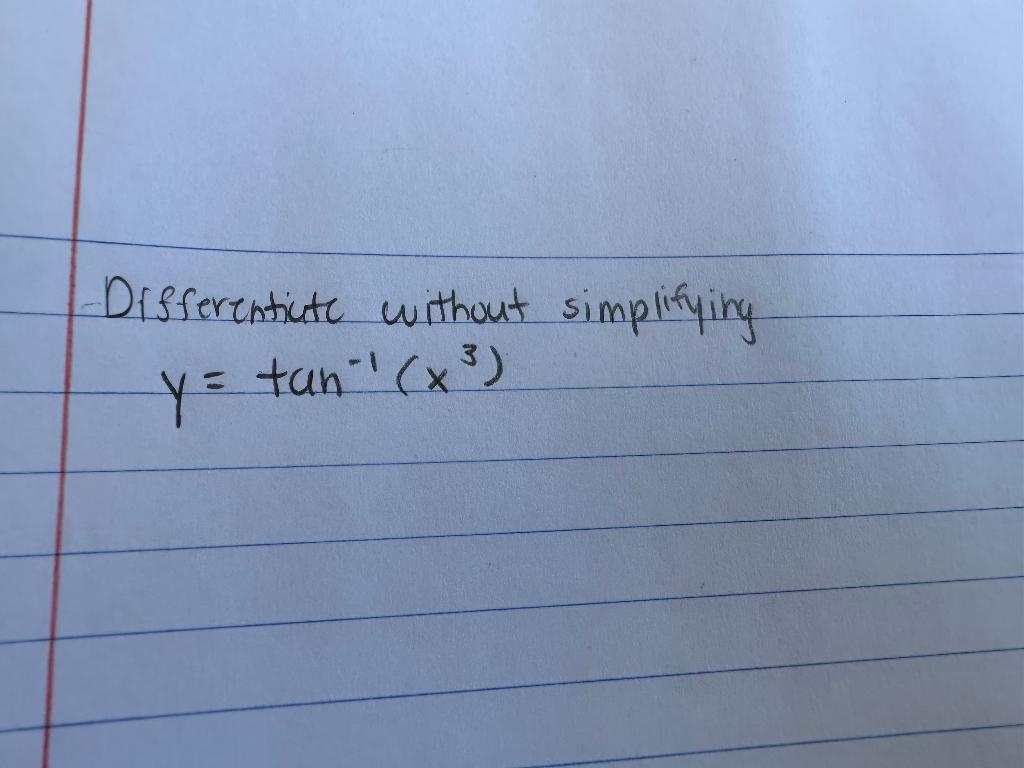 Differentiate without simplifying
y = tan⁻¹ (x³)